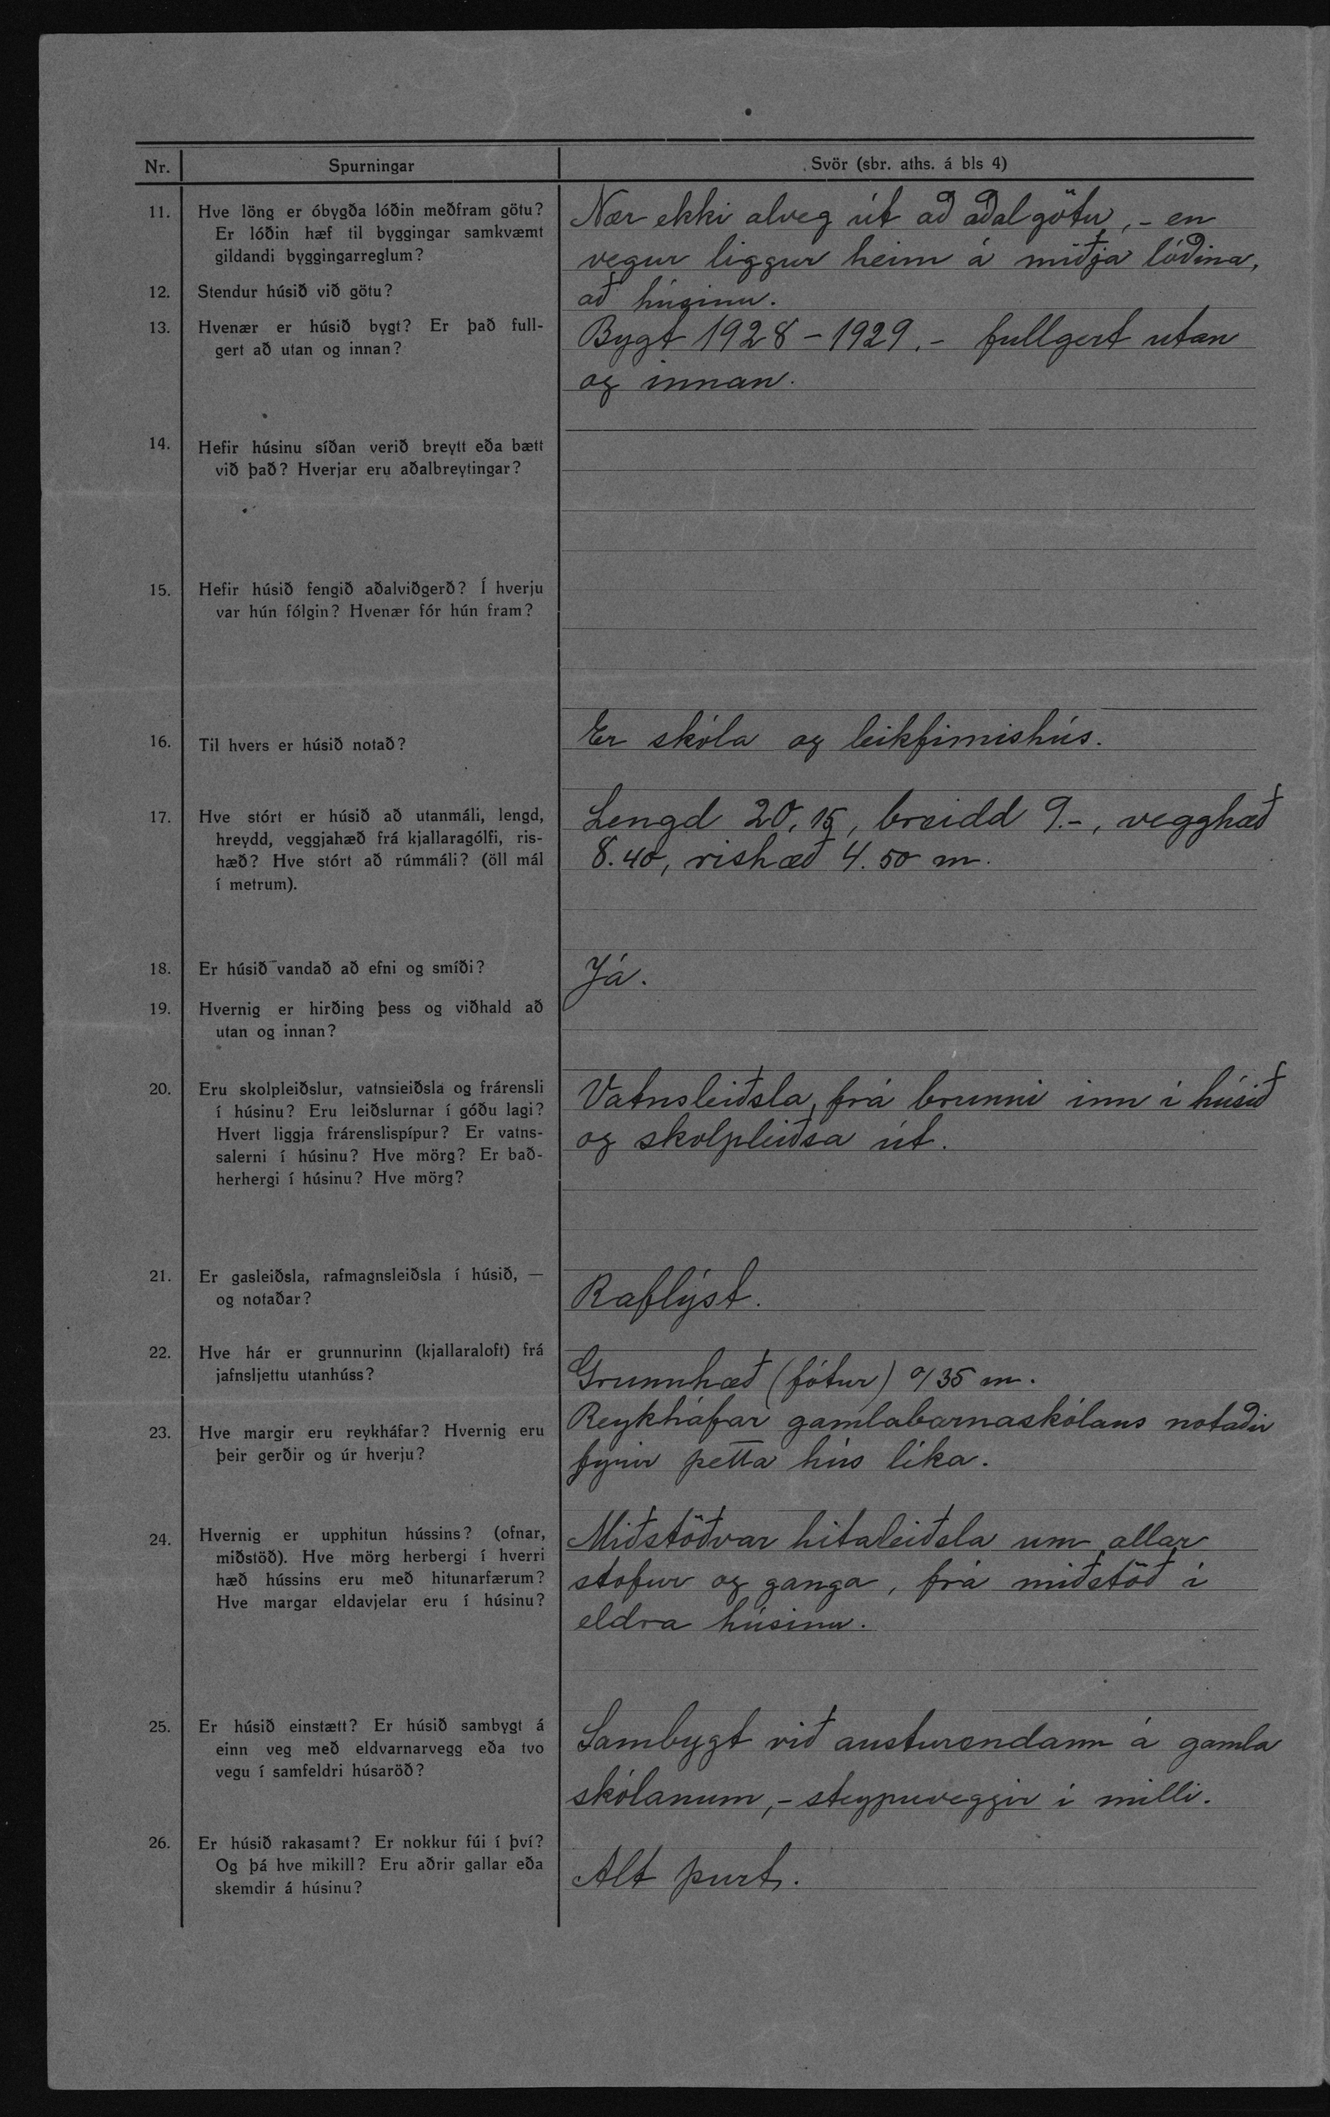 Nr. Spurningar Svör (sbr. aths. á bls 4)
11. Hve löng er óbygða lóðin meðfram götu?
Er lóðin hæf til byggingar samkvæmt
gildandi byggingarreglum?
Nær ekki alveg út að aðalgötu, - en
vegur liggur heim á miðja lóðina,
12. Stendur húsið við götu?
að húsinu.
13. Hvenær er húsið bygt? Er það full-
gert að utan og innan?
Bygt 1928 - 1929. - fullgert utan
og innan.
14. Hefir húsinu síðan verið breytt eða bætt
við það? Hverjar eru aðalbreytingar?
15. Hefir húsið fengið aðalviðgerð? Í hverju
var hún fólgin? Hvenær fór hún fram?
16. Til hvers er húsið notað?
Er skóla og leikfimishús.
17. Hve stórt er húsið að utanmáli, lengd,
hreydd, veggjahæð frá kjallaragólfi, ris-
hæð? Hve stórt að rúmmáli? (öll mál
í metrum).
Lengd 20,15, breidd 9.-, vegghæð
8.40, rishæð 4.50 m.
18. Er húsið vandað að efni og smíði?
Já.
19. Hvernig er hirðing þess og viðhald að
utan og innan?
20. Eru skolpleiðslur, vatnsieiðsla og frárensli
í húsinu? Eru leiðslurnar í góðu lagi?
Hvert liggja frárenslispípur? Er vatns-
salerni í húsinu? Hve mörg? Er bað-
herhergi í húsinu? Hve mörg?
Vatnsleiðsla, frá brunni inn í húsið
og skolpleiðsa út.
21. Er gasleiðsla, rafmagnsleiðsla í húsið, —
og notaðar?
Raflýst.
22. Hve hár er grunnurinn (kjallaraloft) frá
jafnsljettu utanhúss?
Grunnhæð (fótur) 0/35 m.
23. Hve margir eru reykháfar? Hvernig eru
þeir gerðir og úr hverju?
Reykháfar gamlabarnaskólans notaðir
fyrir þetta hús líka.
24. Hvernig er upphitun hússins? (ofnar,
miðstöð). Hve mörg herbergi í hverri
hæð hússins eru með hitunarfærum?
Hve margar eldavjelar eru í húsinu?
Miðstöðvar hitaleiðsla um allar
stofur og ganga, frá miðstöð í
eldra húsinu.
25. Er húsið einstætt? Er húsið sambygt á
einn veg með eldvarnarvegg eða tvo
vegu í samfeldri húsaröð?
Sambygt við austurendann á gamla
skólanum, - steypuveggir í milli.
26. Er húsið rakasamt? Er nokkur fúi í því?
Og þá hve mikill? Eru aðrir gallar eða
skemdir á húsinu?
Alt þurt.